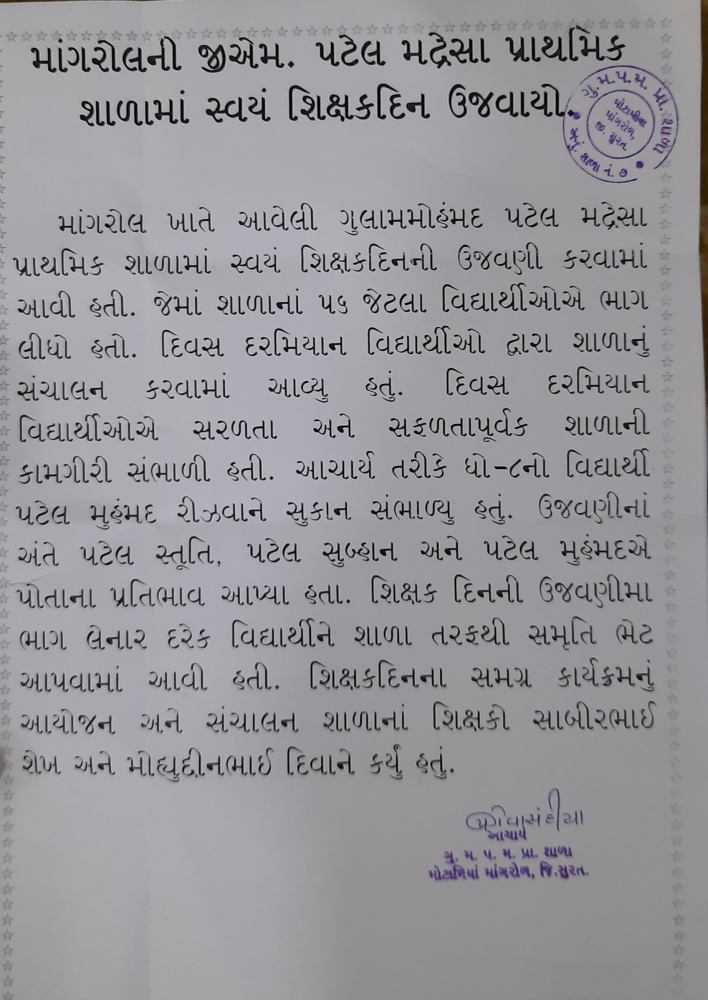 માંગરોલની જીએમ. પટેલ મદ્રેસા પ્રાથમિક
શાળામાં સ્વયં શિક્ષકદિન ઉજવાયો.
ગુ.મ.પ.મ. પ્રા. શાળા
મોટામીયા
માંગરોળ,
જી. સુરત.
શાળા નં. ૭
માંગરોલ ખાતે આવેલી ગુલામમોહંમદ પટેલ મદ્રેસા
પ્રાથમિક શાળામાં સ્વયં શિક્ષકદિનની ઉજવણી કરવામાં
આવી હતી. જેમાં શાળાનાં ૫૬ જેટલા વિદ્યાર્થીઓએ ભાગ
લીધો હતો. દિવસ દરમિયાન વિદ્યાર્થીઓ દ્વારા શાળાનું
સંચાલન કરવામાં આવ્યુ હતું. દિવસ દરમિયાન
વિદ્યાર્થીઓએ સરળતા અને સફળતાપૂર્વક શાળાની
કામગીરી સંભાળી હતી. આચાર્ય તરીકે ધો-૮નો વિદ્યાર્થી
પટેલ મુહંમદ રીઝવાને સુકાન સંભાળ્યુ હતું. ઉજવણીનાં
અંતે પટેલ સ્તૂતિ, પટેલ સુબ્હાન અને પટેલ મુહંમદએ
પોતાના પ્રતિભાવ આપ્યા હતા. શિક્ષક દિનની ઉજવણીમા
ભાગ લેનાર દરેક વિદ્યાર્થીને શાળા તરફથી સમૃતિ ભેટ
આપવામાં આવી હતી. શિક્ષકદિનના સમગ્ર કાર્યક્રમનું
આયોજન અને સંચાલન શાળાનાં શિક્ષકો સાબીરભાઈ
શેખ અને મોહ્યુદ્દીનભાઈ દિવાને કર્યું હતું.
આચાર્ય
ગુ. મ. પ. મ. પ્રા. શાળા
મોટામિયાં માંગરોળ, જિ.સુરત.